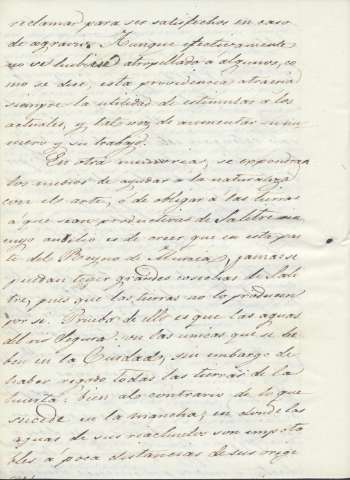 reclamar para ser satisfechos en caso
de agravio. Aunque efectivamente
no se hubiese atropellado a algunos, co
mo se dice, esta providencia atraeria
siempre la utilidad de estimular a los
actuales, y tal vez de aumentar su nu
mero y su trabajo.
En otra memoria, se expondran
los medios de ayudar a la naturaleza
con el arte, o de obligar a las tierras
a que sean productivas de Salitre sin
cuyo auxilio es de creer que en esta par
te del Reyno de Murcia, jamas se
puedan tener grandes cosechas de Sali
tre, pues que las tierras no lo producen
por si. Prueba de ello es que las aguas
del rio Segura son las unicas que se be
ben en la Ciudad, sin embargo de
haber regado todas las tierras de la
huerta, bien al contrario de lo que
sucede en la mancha, en donde las
aguas de sus riachuelos son impota
bles a poca distancia de sus orige